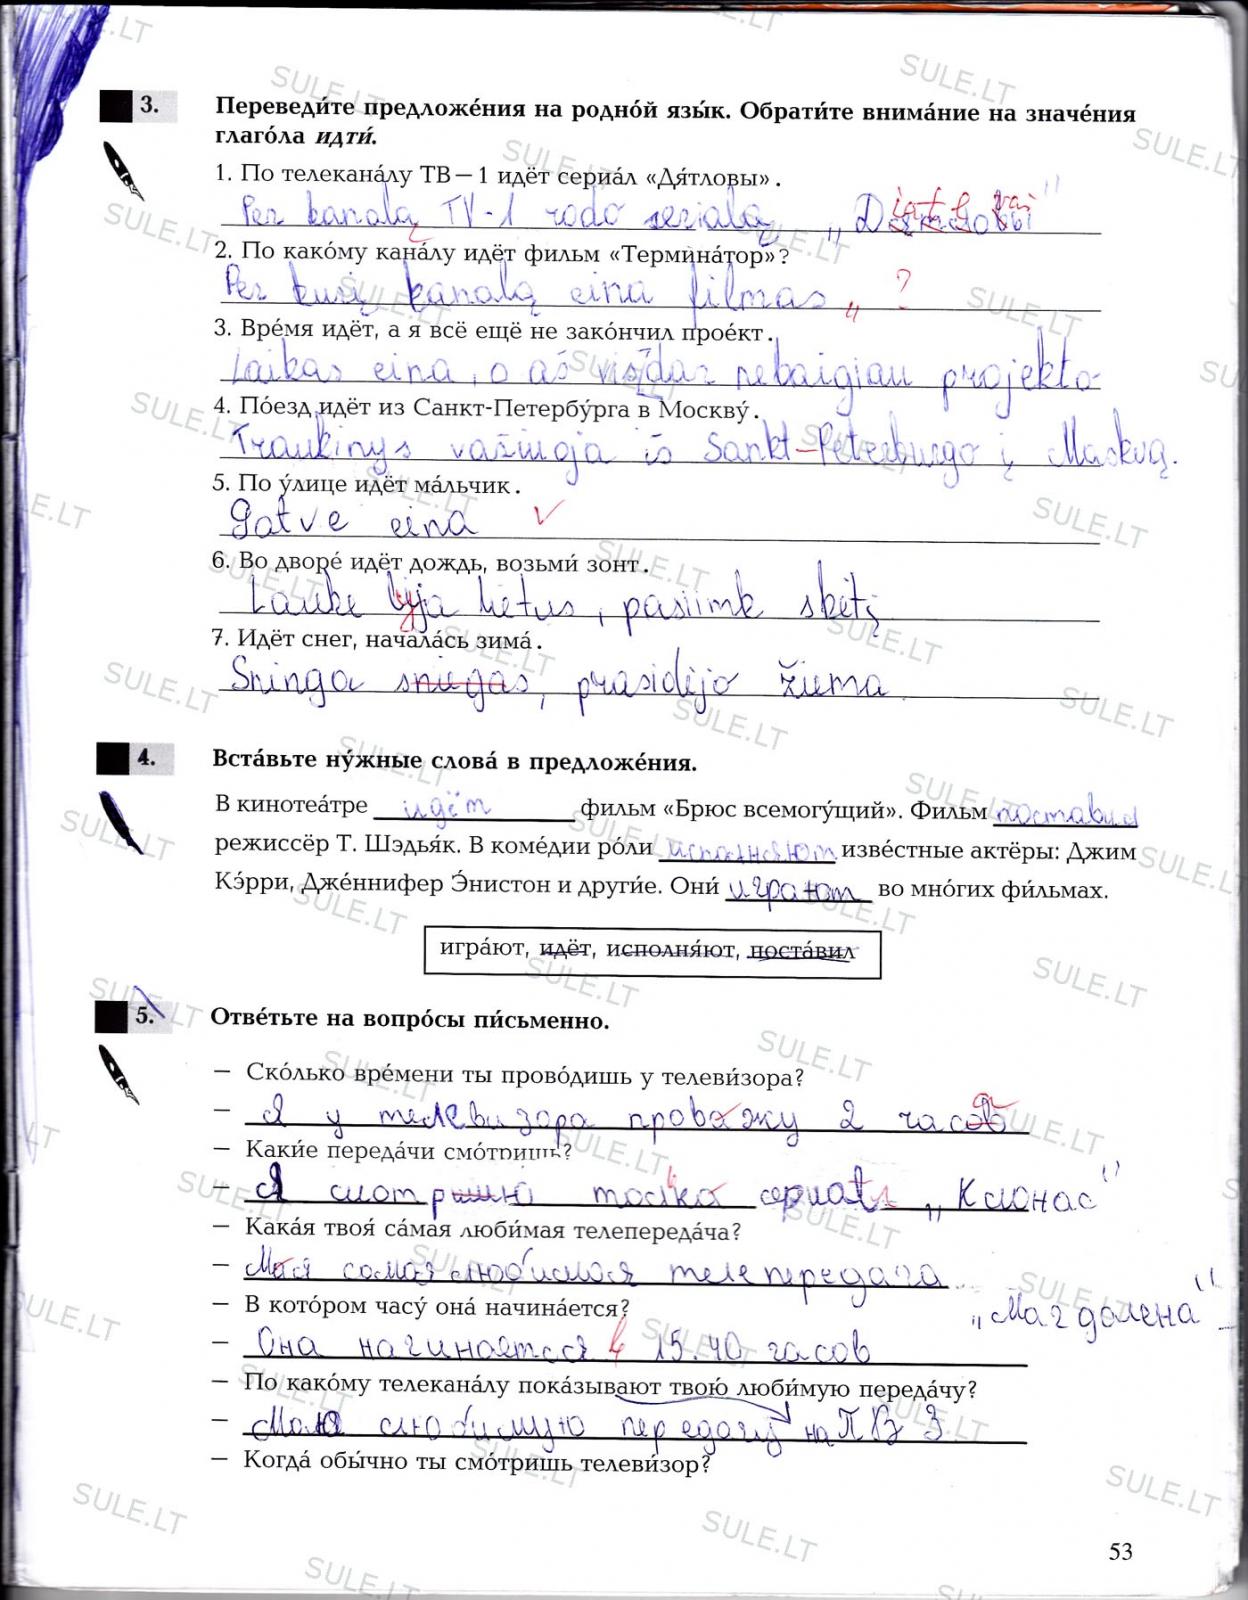 3. Переведи́те предложе́ния на родно́й язы́к. Обрати́те внима́ние на значе́ния
глаго́ла идти́.
1. По телекана́лу ТВ – 1 идёт сериа́л «Дя́тловы».
Per kanalą TV-1 rodo serialą „
2. По како́му кана́лу идёт фильм «Термина́тор»?
Per kurį kanalą eina filmas „ ?
3. Вре́мя идёт, а я всё ещё не зако́нчил прое́кт.
Laikas eina, o aš visdar nebaigiau projekto
4. По́езд идёт из Санкт-Петербу́рга в Москву́.
Traukinys važiuoja iš Sankt-Peterburgo į Maskvą.
5. По у́лице идёт ма́льчик.
Gatve eina
6. Во дворе́ идёт дождь, возьми́ зонт.
Lauke lyja lietus, pasiimk skėtį
7. Идёт снег, начала́сь зима́.
Sninga sniegas, prasidėjo žiema
4. Вста́вьте ну́жные слова́ в предложе́ния.
В кинотеа́тре идёт фильм «Брюс всемогу́щий». Фильм поставил
режиссёр Т. Шэдья́к. В коме́дии ро́ли исполняют изве́стные актёры: Джим
Кэ́рри, Дже́ннифер Э́нистон и други́е. Они́ играют во мно́гих фи́льмах.
игра́ют, идёт, исполня́ют, поста́вил
5. Отве́тьте на вопро́сы пи́сьменно.
– Ско́лько вре́мени ты прово́дишь у телеви́зора?
– Я у телевизора провожу 2 часа
– Каки́е переда́чи смо́тришь?
– Я смотрю только сериал „Клонас"
– Кака́я твоя́ са́мая люби́мая телепереда́ча?
– Моя самая любимая телепередача
„Магдалена"
– В кото́ром часу́ она́ начина́ется?
– Она начинается в 15.40 часов
– По како́му телекана́лу пока́зывают твою́ люби́мую переда́чу?
– Мою любимую передачу на ТВ 3
– Когда́ обы́чно ты смо́тришь телеви́зор?
53
SULE.LT